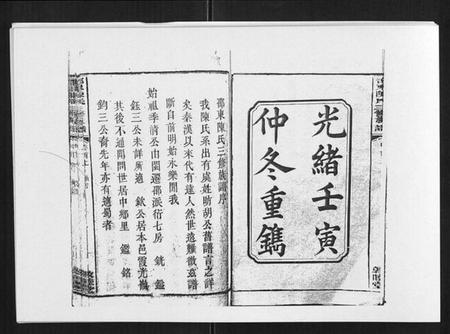 光緒壬寅
仲冬重鐫
邵東陳氏三修族譜序
我陳氏系出有虞姓昉胡公舊譜言之詳
矣秦漢以來代有達人然世遠難徵茲譜
斷自前明始永樂間我
始祖季清公由閩遷邵派衍七房 銑 鑑
鈺三公未詳所遷 欽公居本邑霞光
其後不通聞問世居中鄉里 鑑 銘
鈞三公裔先年亦有適蜀者